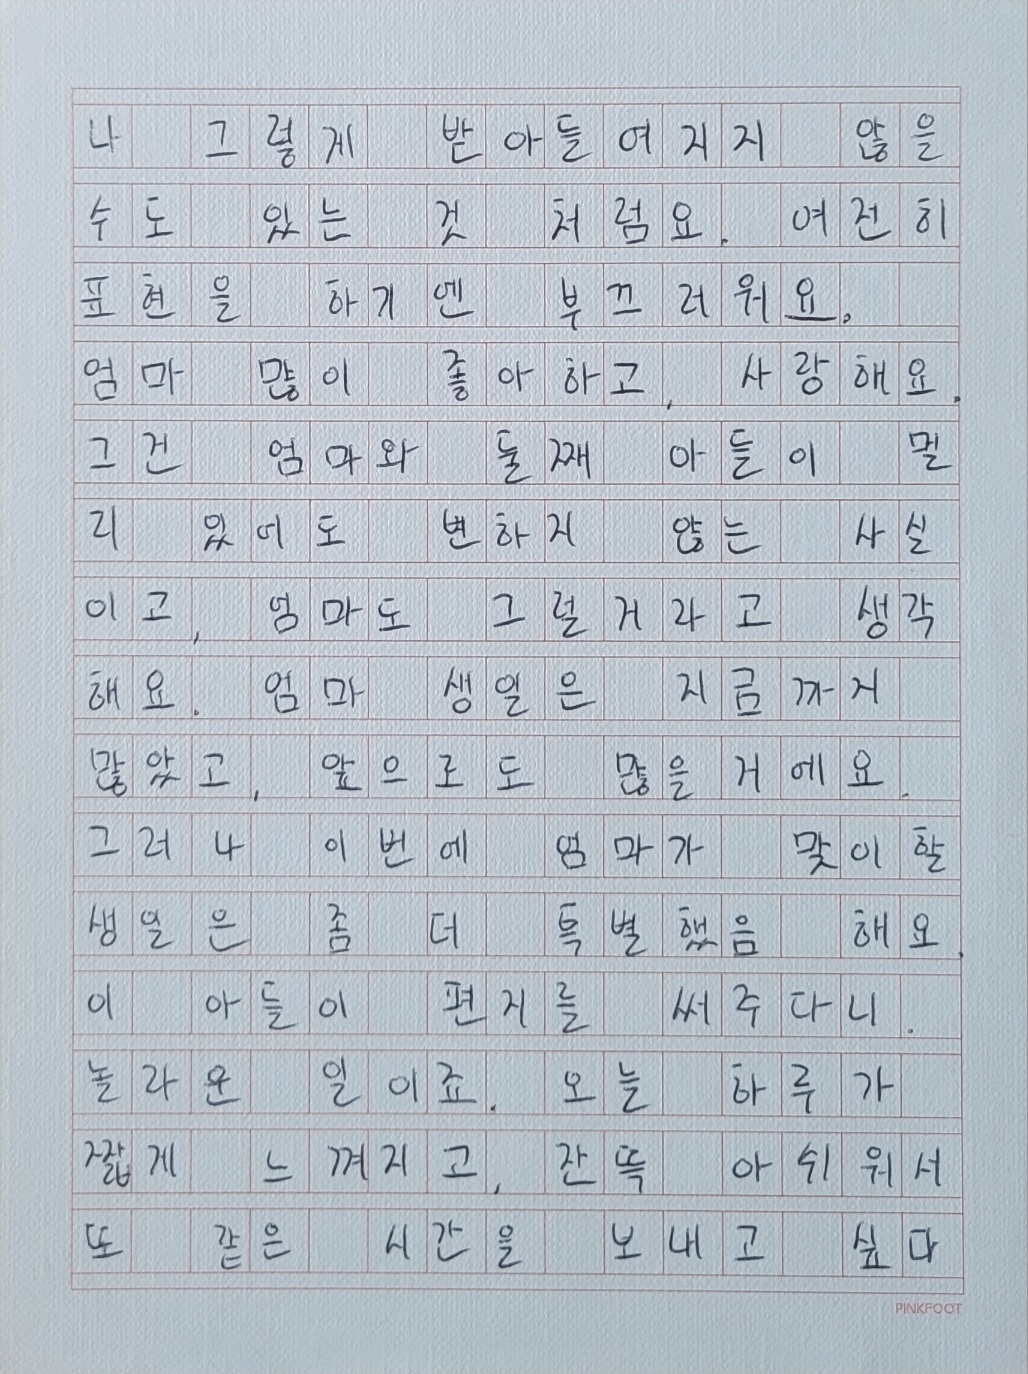 나 그렇게 받아들여지지 않을
수도 있는 것 처럼요. 여전히
표현을 하기엔 부끄러워요.
엄마 많이 좋아하고, 사랑해요.
그건 엄마와 둘째 아들이 멀
리 있어도 변하지 않는 사실
이고, 엄마도 그럴거라고 생각
해요. 엄마 생일은 지금까지
많았고, 앞으로도 많을 거에요.
그러나 이번에 엄마가 맞이할
생일은 좀 더 특별했음 해요.
이 아들이 편지를 써주다니.
놀라운 일이죠. 오늘 하루가
짧게 느껴지고, 잔뜩 아쉬워서
또 같은 시간을 보내고 싶다
PINKFOOT